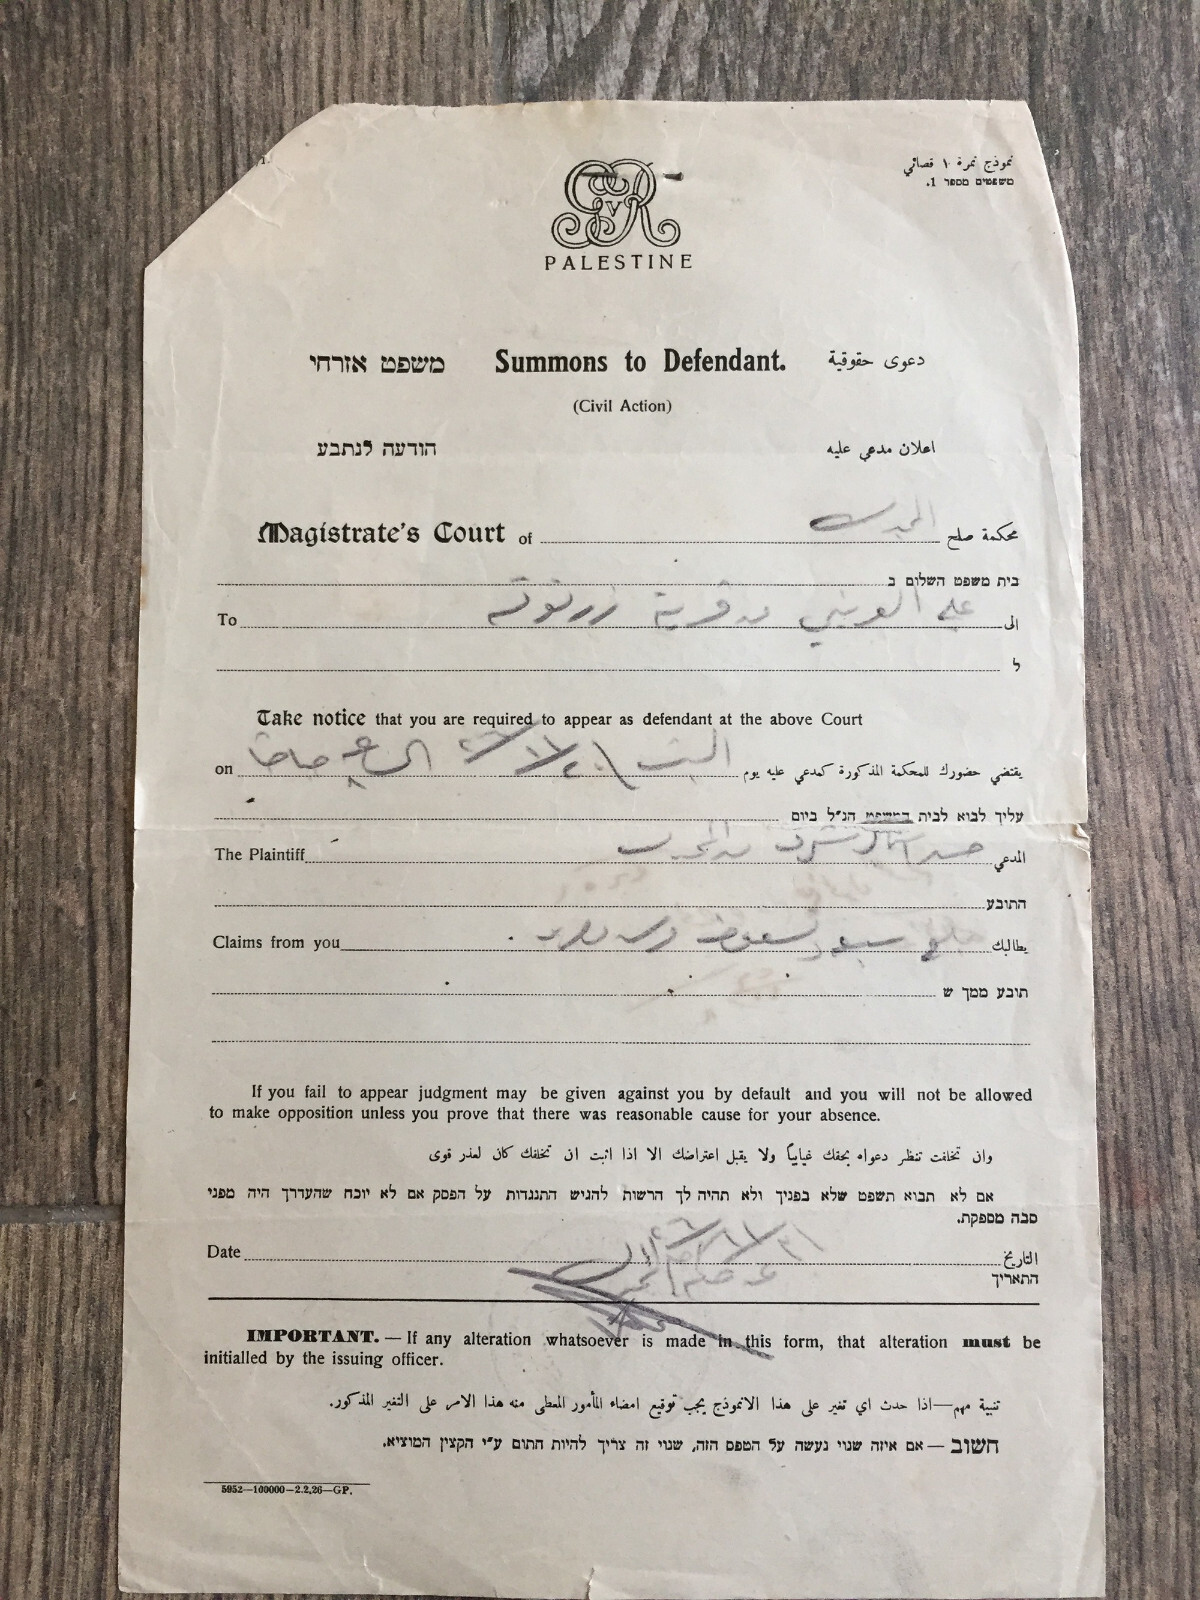 نموذج نمرة ١ قضائي
משפטים מספר 1.
GvR
PALESTINE
משפט אזרחי Summons to Defendant. دعوى حقوقية
(Civil Action)
הודעה לנתבע اعلان مدعي عليه
Magistrate's Court of المجدل محكمة صلح
בית משפט השלום ב
To علي من قرية زرنوقه الى
ל
Take notice that you are required to appear as defendant at the above Court
on السبت يقتضي حضورك للمحكمة المذكورة كمدعي عليه يوم
עליך לבוא לבית המשפט הנ״ל ביום
The Plaintiff من المجدل المدعي
התובע
Claims from you يطالبك
תובע ממך ש
If you fail to appear judgment may be given against you by default and you will not be allowed
to make opposition unless you prove that there was reasonable cause for your absence.
وان تخلفت تنظر دعواه بحقك غيابياً ولا يقبل اعتراضك الا اذا اثبت ان تخلفك كان لعذر قوى
אם לא תבוא תשפט שלא בפניך ולא תהיה לך הרשות להגיש התנגדות על הפסק אם לא יוכח שהעדרך היה מפני
סבה מספקת.
Date التاريخ
התאריך
IMPORTANT. — If any alteration whatsoever is made in this form, that alteration must be
initialled by the issuing officer.
تنبية مهم—اذا حدث اي تغير على هذا الانموذج يجب توقيع امضاء المأمور المعطى منه هذا الامر على التغير المذكور.
חשוב — אם איזה שנוי נעשה על הטפס הזה, שנוי זה צריך להיות חתום ע״י הקצין המוציא.
5952—100000—2.2.26—GP.